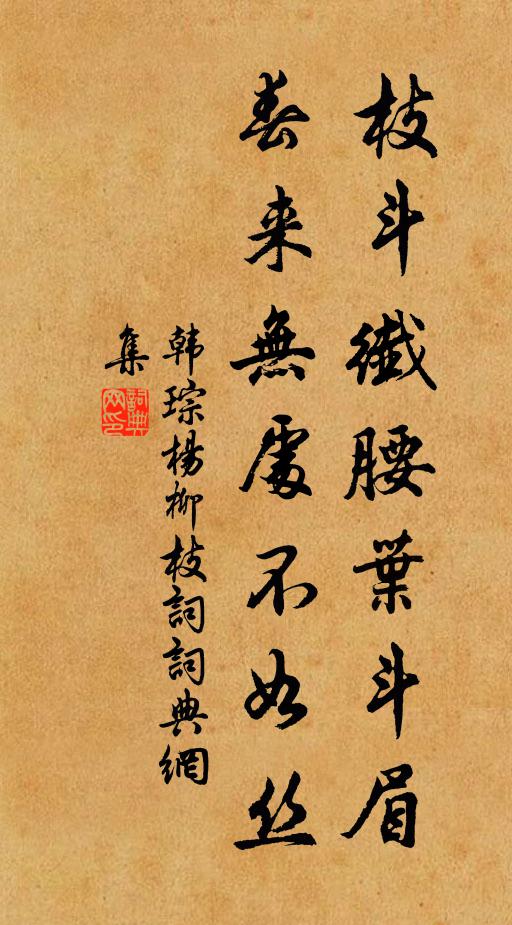 枝斗纖腰葉斗眉
春来無處不如丝
韩琮楊柳枝詞詞典網
集
詞典網印